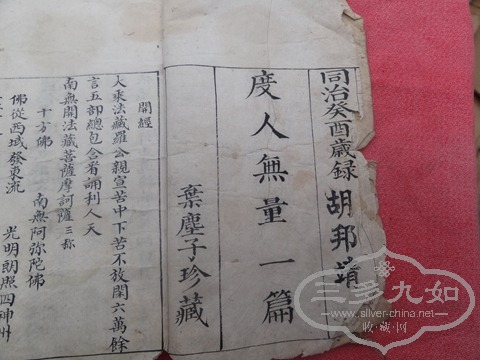 同治癸酉歲録 胡邦靖
度人無量一篇
棄塵子珍藏
開經
大乘法藏羅公親宣苦中下苦不放閑六萬餘
言五部總包含看誦利人天
南無開法藏菩薩摩訶薩三称
十方佛 南無阿弥陀佛
佛從西域發東流 光明朗照四神州
三多九如
www.silver-china.net
收藏网